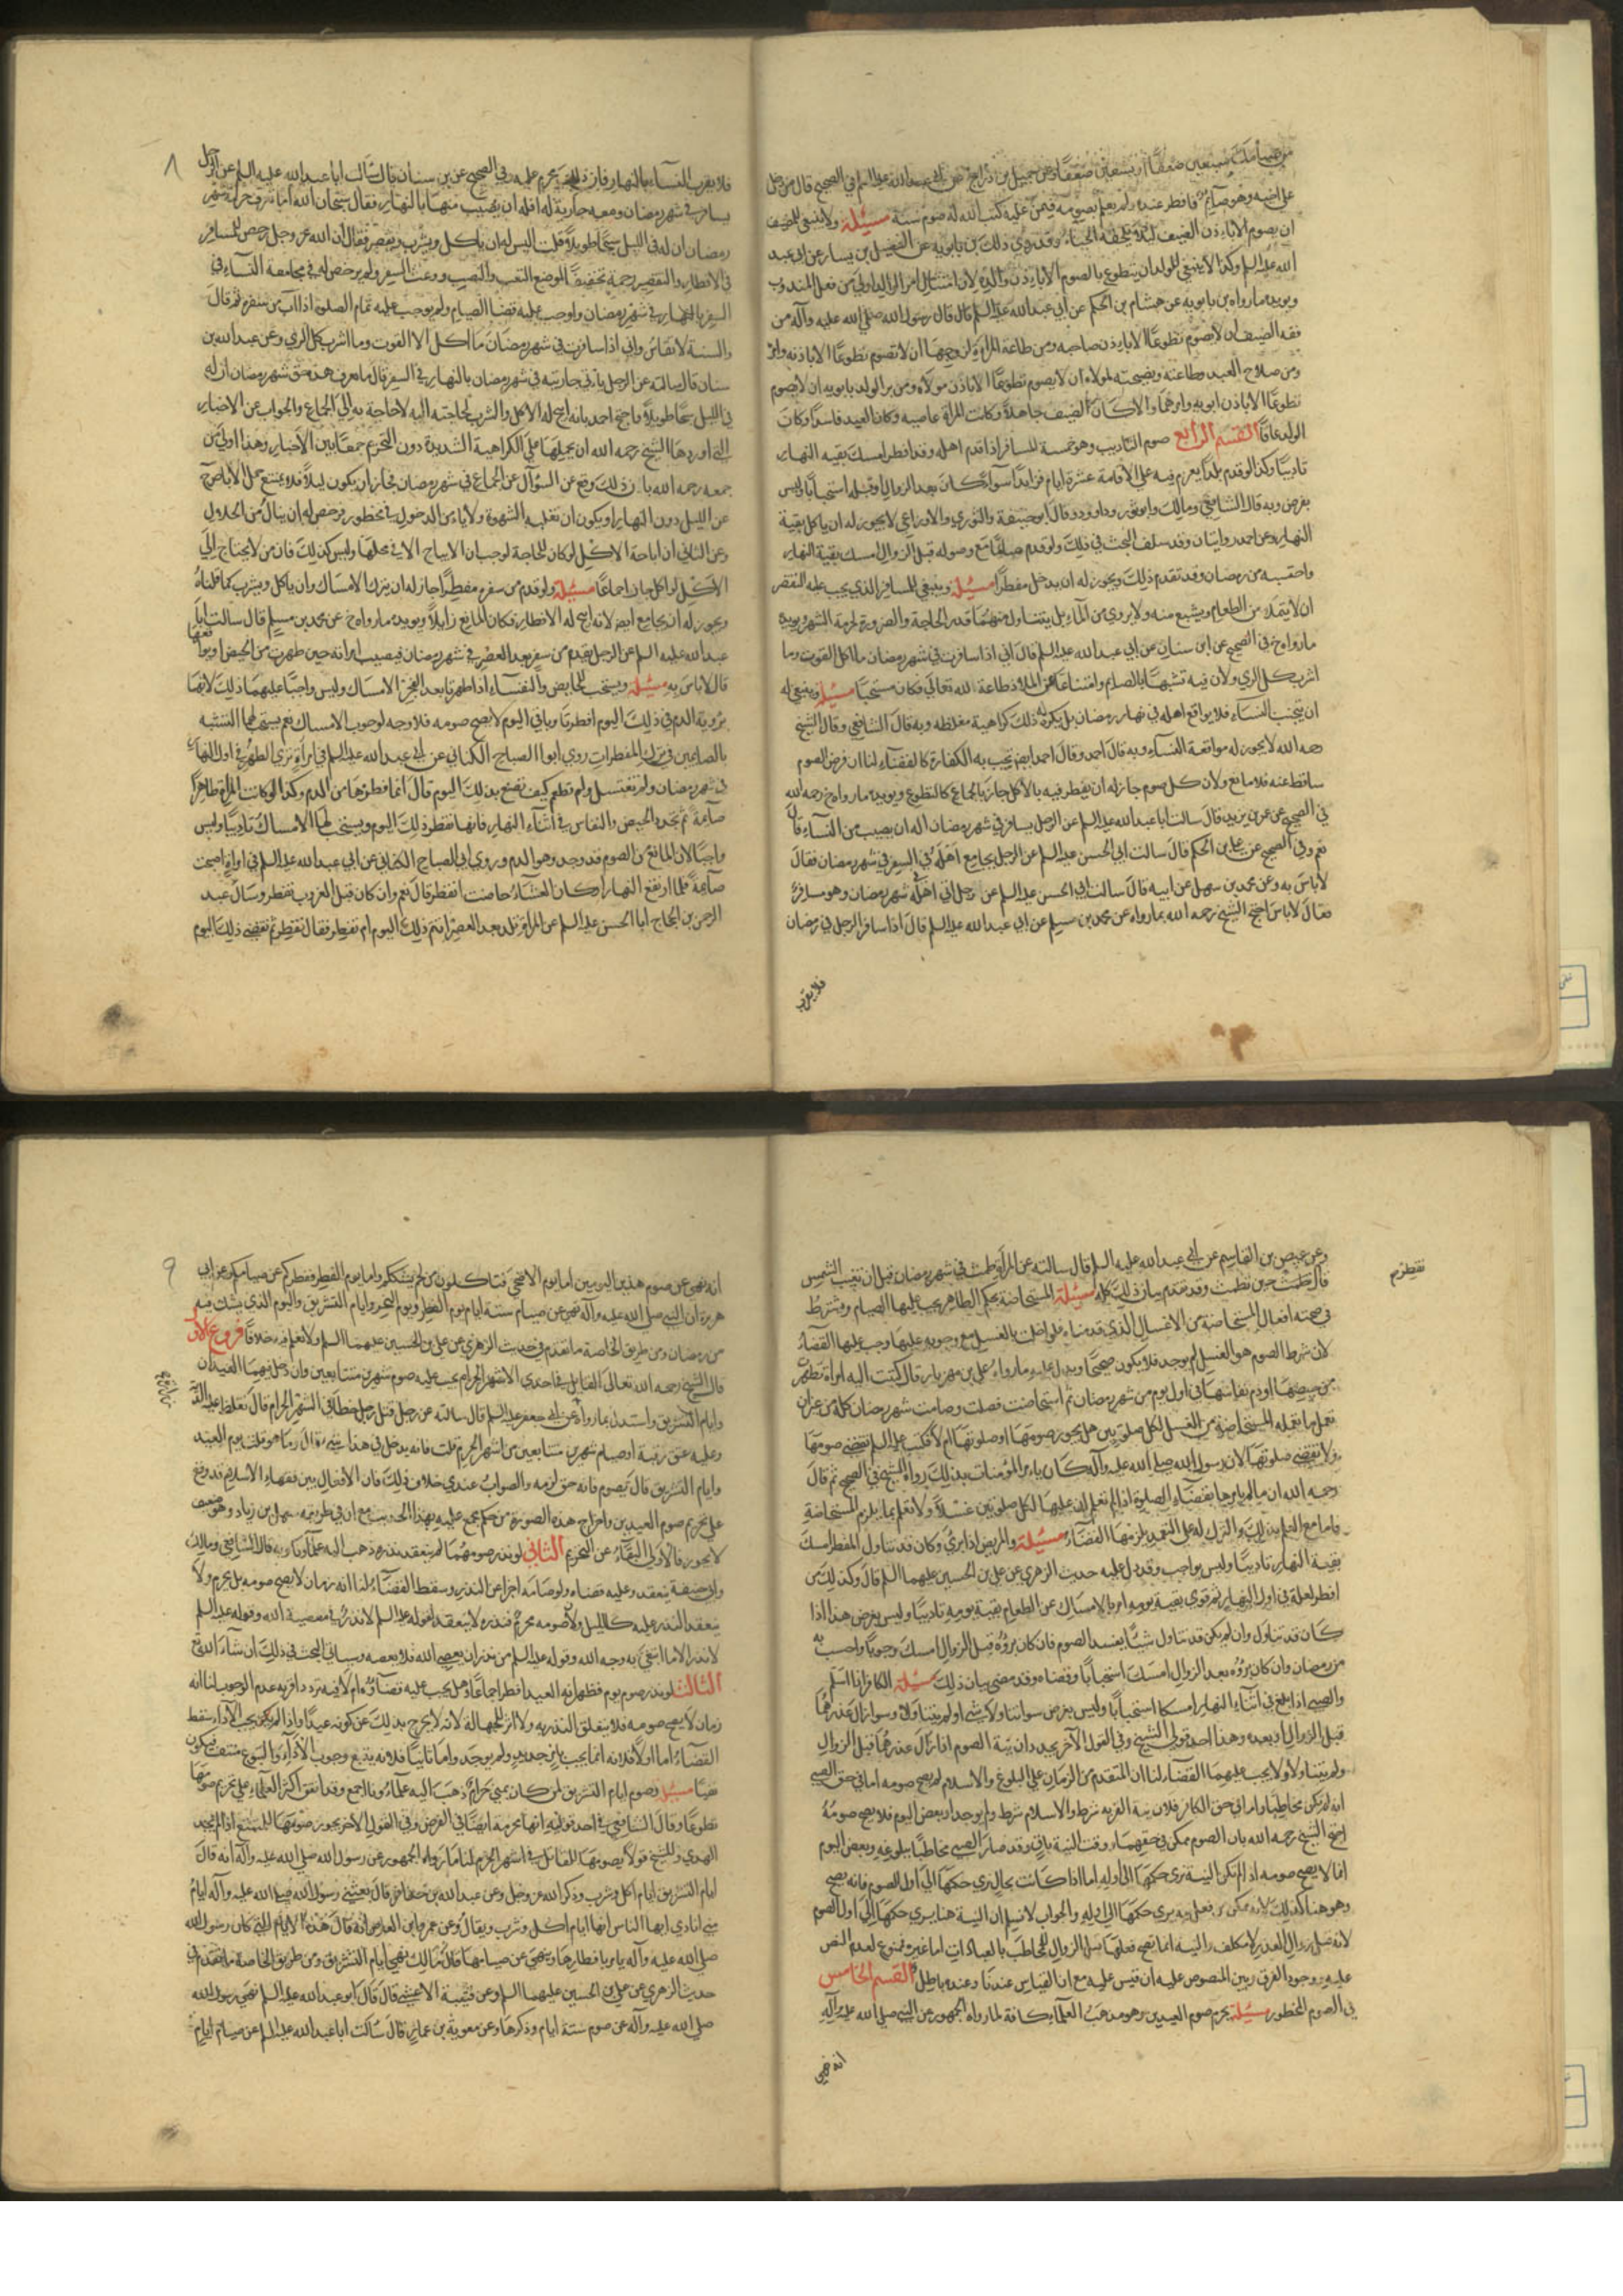 من صيامك سبعين ضعفا او تسعين ضعفا وعن جميل بن دراج عن ابي عبدالله عليه السلم في الصحيح قال من دخل
على اخيه وهو صائم فافطر عنده ولم يعلم بصومه فيمن عليه كتب الله له صوم سنة مسئلة ولا ينبغي للضيف
ان يصوم الا باذن الضيف لئلا يلحقه الحياء وقد روي ذلك بن بابويه عن الفضيل بن يسار عن ابي عبد
الله عليه السلم وكذا لا ينبغي للولد ان يتطوع بالصوم الا باذن والده لان امتثال امر الوالد اولى من فعل المندوب
ويويده ما رواه بن بابويه عن هشام بن الحكم عن ابي عبد الله عليه السلم قال قال رسول الله صلى الله عليه وآله من
فقه الضيف ان لا يصوم تطوعا الا باذن صاحبه ومن طاعة المراة لزوجها ان لا تصوم تطوعا الا باذنه وامره
ومن صلاح العبد وطاعته ونصيحته لمولاه ان لا يصوم تطوعا الا باذن مولاه ومن بر الولد بابويه ان لا يصوم
تطوعا الا باذن ابويه وامرهما والا كان الضيف جاهلا وكانت المراة عاصيه وكان العبد فاسدا وكان
الولد عاقا القسم الرابع صوم التاديب وهو خمسة المسافر اذا قدم اهله وقد افطر امسك بقيه النهار
تاديبا وكذا لو قدم بلدا يعزم فيه على الاقامة عشرة ايام فزايدا سواء كان بعد الزوال او قبله استحبابا وليس
بفرض وبه قال الشافعي ومالك وابو ثور وداود وقال ابو حنيفة والثوري والاوزاعي لا يجوز له ان ياكل بقية
النهار وعن احمد روايتان وقد سلف البحث في ذلك ولو قدم صائما مع وصوله قبل الزوال امسك بقية النهار
واحتسبه من رمضان وقد تقدم ذلك ويجوز له ان يدخل مفطرا مسئلة وينبغي للمسافر الذي يجب عليه التقصر
ان لا يتملا من الطعام ويشبع منه ولا يروي من الماء بل يتناول منهما قدر الحاجة والضرورة لحرمة الشهر ويويده
ما رواه خ في الصحيح عن ابن سنان عن ابي عبد الله عليه السلم قال اني اذا سافرت في شهر رمضان ما اكل القوت وما
اشرب كل الري ولان فيه تشبها بالصائم وامتناعا عن الملاذ طاعة لله تعالى فكان مستحبا مسئلة وينبغي له
ان يتجنب النساء فلا يواقع اهله في نهار رمضان بل يكره له ذلك كراهية مغلظه وبه قال الشافعي وقال الشيخ
رحمه الله لا يجوز له مواقعة النساء وبه قال احمد وقال احمد ايضا يجب به الكفارة كالقضاء لنا ان فرض الصوم
ساقط عنه فلا مانع ولان كل صوم جاز له ان يفطر فيه بالاكل جاز بالجماع كالتطوع ويويده ما رواه خ رحمه الله
في الصحيح عن عمر بن يزيد قال سالت ابا عبد الله عليه السلم عن الرجل يسافر في شهر رمضان اله ان يصيب من النساء قال
نعم وفي الصحيح عن علي بن الحكم قال سالت ابي الحسن عليه السلم عن الرجل يجامع اهله في السفر في شهر رمضان فقال
لا باس به وعن محمد بن سهل عن ابيه قال سالت ابي الحسن عليه السلم عن رجل اتى اهله في شهر رمضان وهو مسافر
فقال لا باس احتج الشيخ رحمه الله بما رواه عن محمد بن مسلم عن ابي عبد الله عليه السلم قال اذا سافر الرجل في رمضان
فلا يقرب
٨
فلا يقرب النساء بالنهار فان ذلك محرم عليه وفي الصحيح عن بن سنان قال سالت ابا عبد الله عليه السلم عن الرجل
يسافر في شهر رمضان ومعه جارية له افله ان يصيب منها بالنهار فقال سبحان الله اما تعرف حرمة شهر
رمضان ان له في الليل سبحا طويلا قلت اليس له ان ياكل ويشرب ويقصر فقال ان الله عز وجل رخص للمسافر
في الافطار والتقصير رحمة وتخفيفا لموضع التعب والنصب ووعث السفر ولم يرخص له في مجامعة النساء في
السفر بالنهار في شهر رمضان واوجب عليه قضاء الصيام ولم يوجب عليه تمام الصلوة اذا آب من سفره ثم قال
والسنة لا تقاس واني اذا سافرت في شهر رمضان ما اكل الا القوت وما اشرب كل الري وعن عبد الله بن
سنان قال سالته عن الرجل ياتي جاريته في شهر رمضان بالنهار في السفر قال ما عرف هذا حق شهر رمضان ان له
في الليل سبحا طويلا واحتج احمد بانه ابيح له الاكل والشرب لحاجته اليه لا حاجة به الى الجماع والجواب عن الاخبار
التي اوردها الشيخ رحمه الله ان يحملها على الكراهية الشديدة دون التحريم جمعا بين الاخبار وهذا اولى من
جمعه رحمه الله بان ذلك وقع عن السؤال عن الجماع في شهر رمضان فجاز ان يكون ليلا فلا يمتنع حمل الاباحة
عن الليل دون النهار او يكون ان تغلبه الشهوة ولا يامن الدخول في محظور فرخص له ان ينال من الحلال
وعن الثاني ان اباحة الاكل لو كان للحاجة لوجب ان لا يباح الا في محلها وليس كذلك فان من لا يحتاج الى
الاكل لو اكل جاز اجماعا مسئلة ولو قدم من سفره مفطرا جاز له ان يترك الامساك وان ياكل ويشرب كما قلناه
ويجوز له ان يجامع ايضا لانه ابيح له الافطار فكان المانع زايلا ويويده ما رواه خ عن محمد بن مسلم قال سالت ابا
عبد الله عليه السلم عن الرجل يقدم من سفر بعد العصر في شهر رمضان فيصيب امراته حين طهرت من الحيض ايواقعها
قال لا باس به مسئلة ويستحب للحايض والنفساء اذا طهرتا بعد الفجر الامساك وليس واجبا عليهما ذلك لانهما
برؤية الدم في ذلك اليوم افطرتا وباقي اليوم لا يصح صومه فلا وجه لوجوب الامساك نعم يستحب لهما التشبه
بالصائمين في ترك المفطرات روى ابو الصباح الكناني عن ابي عبد الله عليه السلم في امراة ترى الطهر في اول النهار
في شهر رمضان ولم تغتسل ولم تطعم كيف تصنع بذلك اليوم قال انما فطرها من الدم وكذا لو كانت المراة طاهرا
صائمة ثم تجدد الحيض والنفاس في اثناء النهار فانها تفطر ذلك اليوم ويستحب لها الامساك تاديبا وليس
واجبا لان المانع من الصوم قد وجد وهو الدم وروى ابي الصباح الكناني عن ابي عبد الله عليه السلم في امراة اصبحت
صائمة فلما ارتفع النهار او كان العشاء حاضت اتفطر قال نعم وان كان قبل الغروب فتفطر وسال عبد
الرحمن بن الحجاج ابا الحسن عليه السلم عن المراة تلد بعد العصر اتتم ذلك اليوم ام تفطر فقال تفطر ثم تقضي ذلك اليوم
تفطر ثم
وعن عيص بن القاسم عن ابي عبد الله عليه السلم قال سالته عن المراة تطمث في شهر رمضان قبل ان تغيب الشمس
قال تفطر حين تطمث وقد تقدم بيان ذلك كله مسئلة المستحاضة بحكم الطاهر يجب عليها الصيام ويشترط
في صحته افعال المستحاضة من الاغسال الذي قدمناه فلو اخلت بالغسل مع وجوبه عليها وجب عليها القضاء
لان شرط الصوم هو الغسل لم يوجد فلا يكون صحيحا ويدل عليه ما رواه علي بن مهزيار قال كتبت اليه امراة تطهرت
من حيضها او دم نفاسها في اول يوم من شهر رمضان ثم استحاضت فصلت وصامت شهر رمضان كله من غير ان
تعمل ما تعمله المستحاضة من الغسل لكل صلوتين هل يجوز صومها وصلوتها ام لا فكتب عليه السلم تقضي صومها
ولا تقضي صلوتها لان رسول الله صلى الله عليه وآله كان يامر المؤمنات بذلك رواه الشيخ في الصحيح ثم قال
رحمه الله انما لم يامرها بقضاء الصلوة اذا لم تعلم ان عليها لكل صلوتين غسلا ولا تعلم بما يلزم المستحاضة
فاما مع العلم بذلك والترك له على التعمد يلزمها القضاء مسئلة والمريض اذا برئ وكان قد تناول المفطر امسك
بقية النهار تاديبا وليس بواجب وقد دل عليه حديث الزهري عن علي بن الحسين عليهما السلم قال وكذلك من
افطر لعلة في اول النهار ثم قوي بقية يومه امر بالامساك عن الطعام بقية يومه تاديبا وليس بفرض هذا اذا
كان قد تناول وان لم يكن قد تناول شيئا يفسد الصوم فان كان برؤه قبل الزوال امسك وجوبا واحتسب به
من رمضان وان كان برؤه بعد الزوال امسك استحبابا وقضاه وقد مضى بيان ذلك مسئلة الكافر اذا اسلم
والصبي اذا بلغ في اثناء النهار امسكا استحبابا وليس بفرض سواء تناولا شيئا او لم يتناولا وسوا زال عذرهما
قبل الزوال او بعده وهذا احد قولي الشيخ وفي القول الآخر يجددان نية الصوم اذا زال عذرهما قبل الزوال
ولم يتناولا ولا يجب عليهما القضاء لنا ان المتقدم من الزمان على البلوغ والاسلام لم يصح صومه اما في حق الصبي
انه لم يكن مخاطبا واما في حق الكافر فلان نية القربه شرط والاسلام شرط ولم يوجدا وبعض اليوم فلا يصح صومه
احتج الشيخ رحمه الله بان الصوم ممكن في حقهما ووقت النية باق وقد صار الصبي مخاطبا ببلوغه وبعض اليوم
انما لا يصح صومه اذا لم تكن النية تسري حكمها الى اوله اما اذا كانت بحال تسري حكمها الى اول الصوم فانه يصح
وهو هنا كذلك لانه يتمكن من فعل نية يسري حكمها الى اوله والجواب لا نسلم ان النية هنا يسري حكمها الى اول الصوم
لانه قبل زوال العذر لا مكلف والنية انما يصح فعلها قبل الزوال للمخاطب بالعبادات اما غيره ممنوع لعدم النص
عليه ووجود الفرق بين المنصوص عليه ان قيس عليه مع ان القياس عندنا وعنده باطل القسم الخامس
في الصوم المحظور مسئلة يحرم صوم العيدين وهو مذهب العلماء كافة لما رواه الجمهور عن النبي صلى الله عليه وآله
انه نهى
٩
انه نهى عن صوم هذين اليومين اما يوم الاضحى فتاكلون من لحم نسككم واما يوم الفطر ففطركم عن صيامكم وعن ابي
هريرة ان النبي صلى الله عليه وآله نهى عن صيام ستة ايام يوم الفطر ويوم النحر وايام التشريق واليوم الذي يشك فيه
من رمضان ومن طريق الخاصة ما تقدم في حديث الزهري عن علي بن الحسين عليهما السلم ولا نعلم فيه خلافا فروع الاول
قال الشيخ رحمه الله تعالى القاتل في احدى الاشهر الحرام يجب عليه صوم شهرين متتابعين وان دخل فيهما العيدان
وايام التشريق واستدل بما رواه عن ابي جعفر عليه السلم قال سالته عن رجل قتل رجلا خطأ في الشهر الحرام قال تغلظ عليه الدية
وعليه عتق رقبة او صيام شهرين متتابعين من اشهر الحرم قلت فانه يدخل في هذا شيء قال وما هو قلت يوم العيد
وايام التشريق قال يصوم فانه حق لزمه والصواب عندي خلاف ذلك فان الاقوال بين فقهاء الاسلام قد وقع
على تحريم صوم العيدين واخراج هذه الصورة من حكم مجمع عليه بهذا الحديث مع ان في طريقه سهل بن زياد وهو ضعيف
لا يجوز فالاولى البقاء على التحريم الثاني لو نذر صومهما لم ينعقد نذره ذهب اليه علماؤنا وبه قال الشافعي ومالك
وابي حنيفة ينعقد وعليه قضاه ولو صامه اجزا عن النذر وسقط القضاء لنا انه زمان لا يصح صومه بل يحرم ولا
ينعقد النذر عليه كالليل ولان صومه محرم فنذره لا ينعقد لقوله عليه السلم لا نذر في معصية الله وقوله عليه السلم
لا نذر الا ما ابتغي به وجه الله وقوله عليه السلم من نذر ان يعصي الله فلا يعصه وسياتي البحث في ذلك ان شاء الله تع
الثالث لو نذر صوم يوم فظهر انه العيد افطر اجماعا وهل يجب عليه قضاؤه ام لا فيه تردد اقربه عدم الوجوب لنا انه
زمان لا يصح صومه فلا يتعلق النذر به ولا اثر للجهالة لانه لا يخرج بذلك عن كونه عيدا واذا لم يكن يجب الاداء سقط
القضاء اما اولا فلانه انما يجب بامر جديد ولم يوجد واما ثانيا فلانه يتبع وجوب الاداء والمتبوع منتف فيكون
منفيا مسئلة وصوم ايام التشريق لمن كان بمنى حرام ذهب اليه علماؤنا اجمع وقد اتفق اكثر العلماء على تحريم صومها
تطوعا وقال الشافعي في احد قوليه انها محرمة ايضا في الفرض وفي القول الآخر يجوز صومها للمتمتع اذا لم يجد
الهدي وللشيخ قول يصومها للقاتل في اشهر الحرم لنا ما رواه الجمهور عن رسول الله صلى الله عليه وآله انه قال
ايام التشريق ايام اكل وشرب وذكر الله عز وجل وعن عبد الله بن حذافة قال بعثني رسول الله صلى الله عليه وآله ايام
منى انادي ايها الناس انها ايام اكل وشرب وبعال وعن عمرو بن العاص انه قال هذه الايام التي كان رسول الله
صلى الله عليه وآله يامر بافطارها وينهى عن صيامها قال مالك هي ايام التشريق ومن طريق الخاصة ما تقدم في
حديث الزهري عن علي بن الحسين عليهما السلم وعن قتيبة الاعشى قال قال ابو عبد الله عليه السلم نهى رسول الله
صلى الله عليه وآله عن صوم ستة ايام وذكرها وعن معوية بن عمار قال سالت ابا عبد الله عليه السلم عن صيام ايام